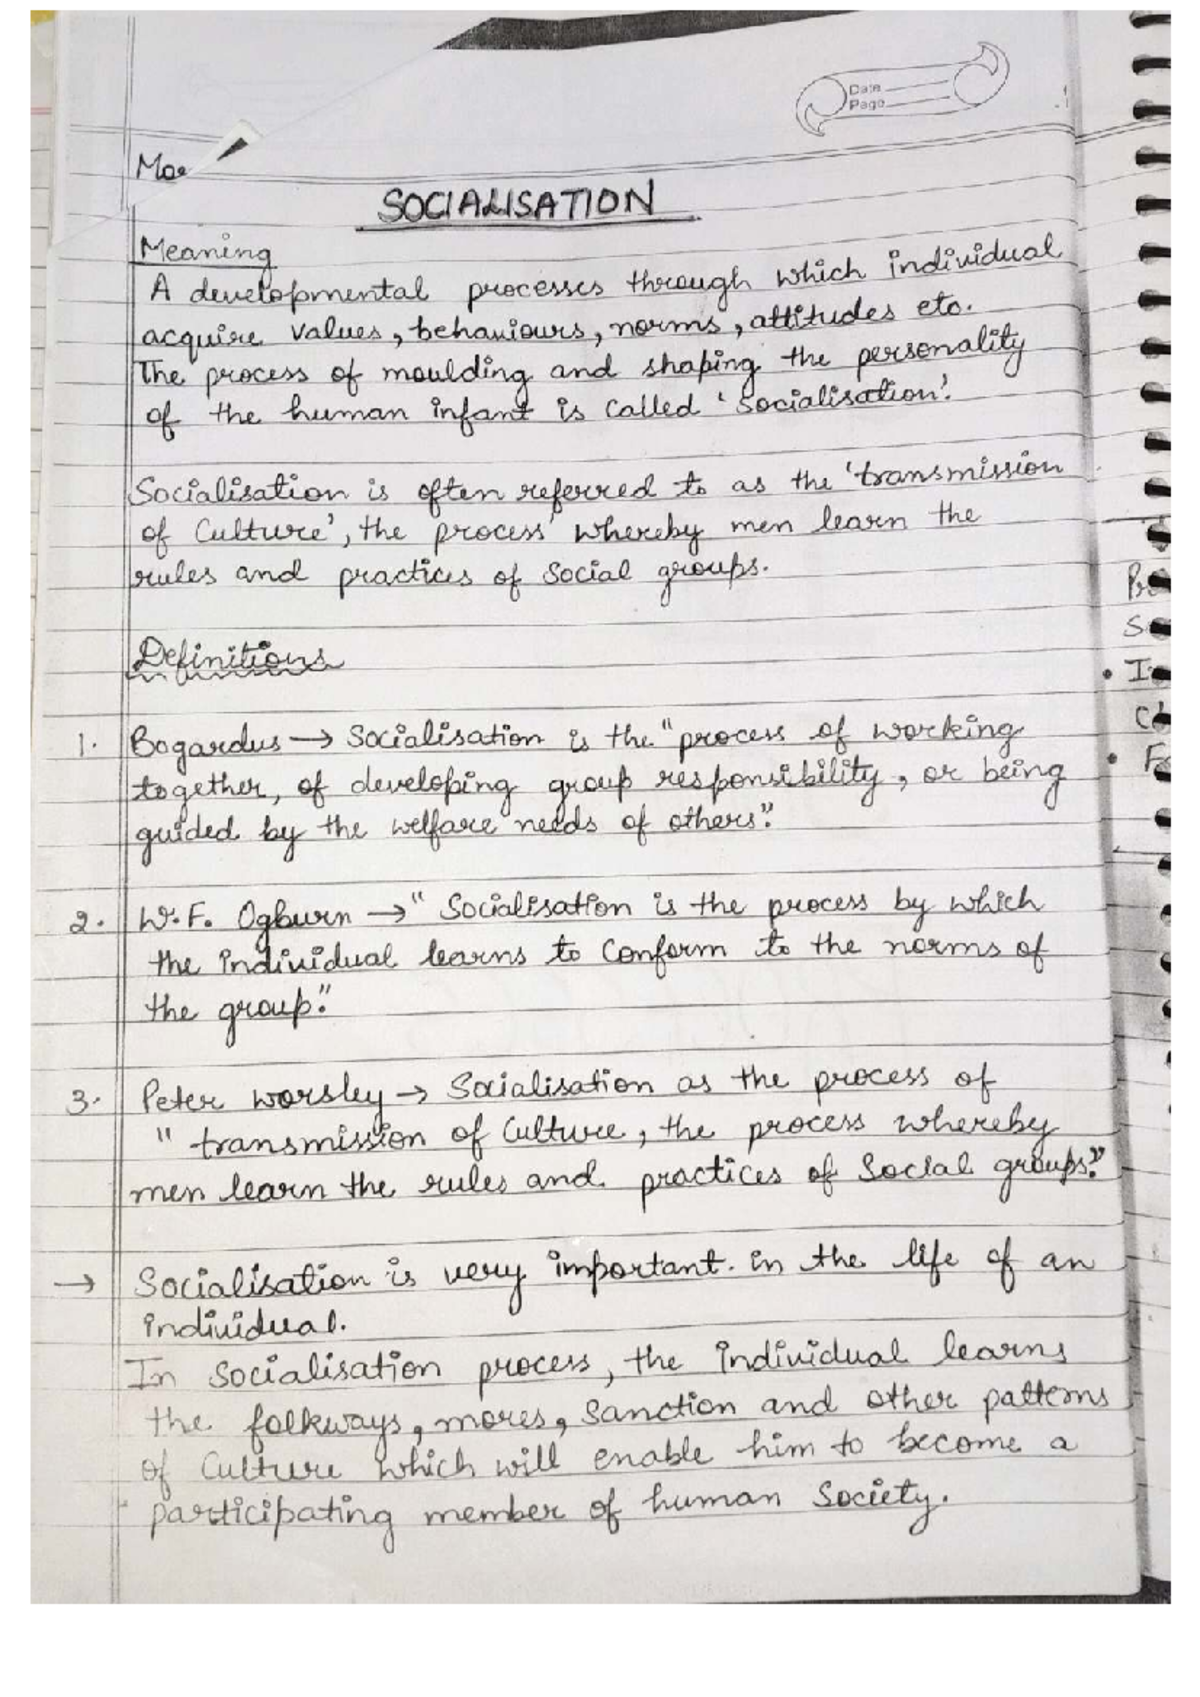 Date
Page
SOCIALISATION
Meaning
A developmental processes through which individual
acquire values, behaviours, norms, attitudes etc.
The process of moulding and shaping the personality
of the human infant is called 'Socialisation'.
Socialisation is often referred to as the 'transmission
of Culture', the process whereby men learn the
rules and practices of Social groups.
Definitions
1. Bogardus → Socialisation is the "process of working
together, of developing group responsibility, or being
guided by the welfare needs of others".
2. W.F. Ogburn → "Socialisation is the process by which
the individual learns to Conform to the norms of
the group."
3. Peter worsley → Socialisation as the process of
"transmission of Culture, the process whereby
men learn the rules and practices of Social groups."
→ Socialisation is very important. in the life of an
individual.
In Socialisation process, the individual learns
the folkways, mores, Sanction and other patterns
of Culture which will enable him to become a
participating member of human Society.